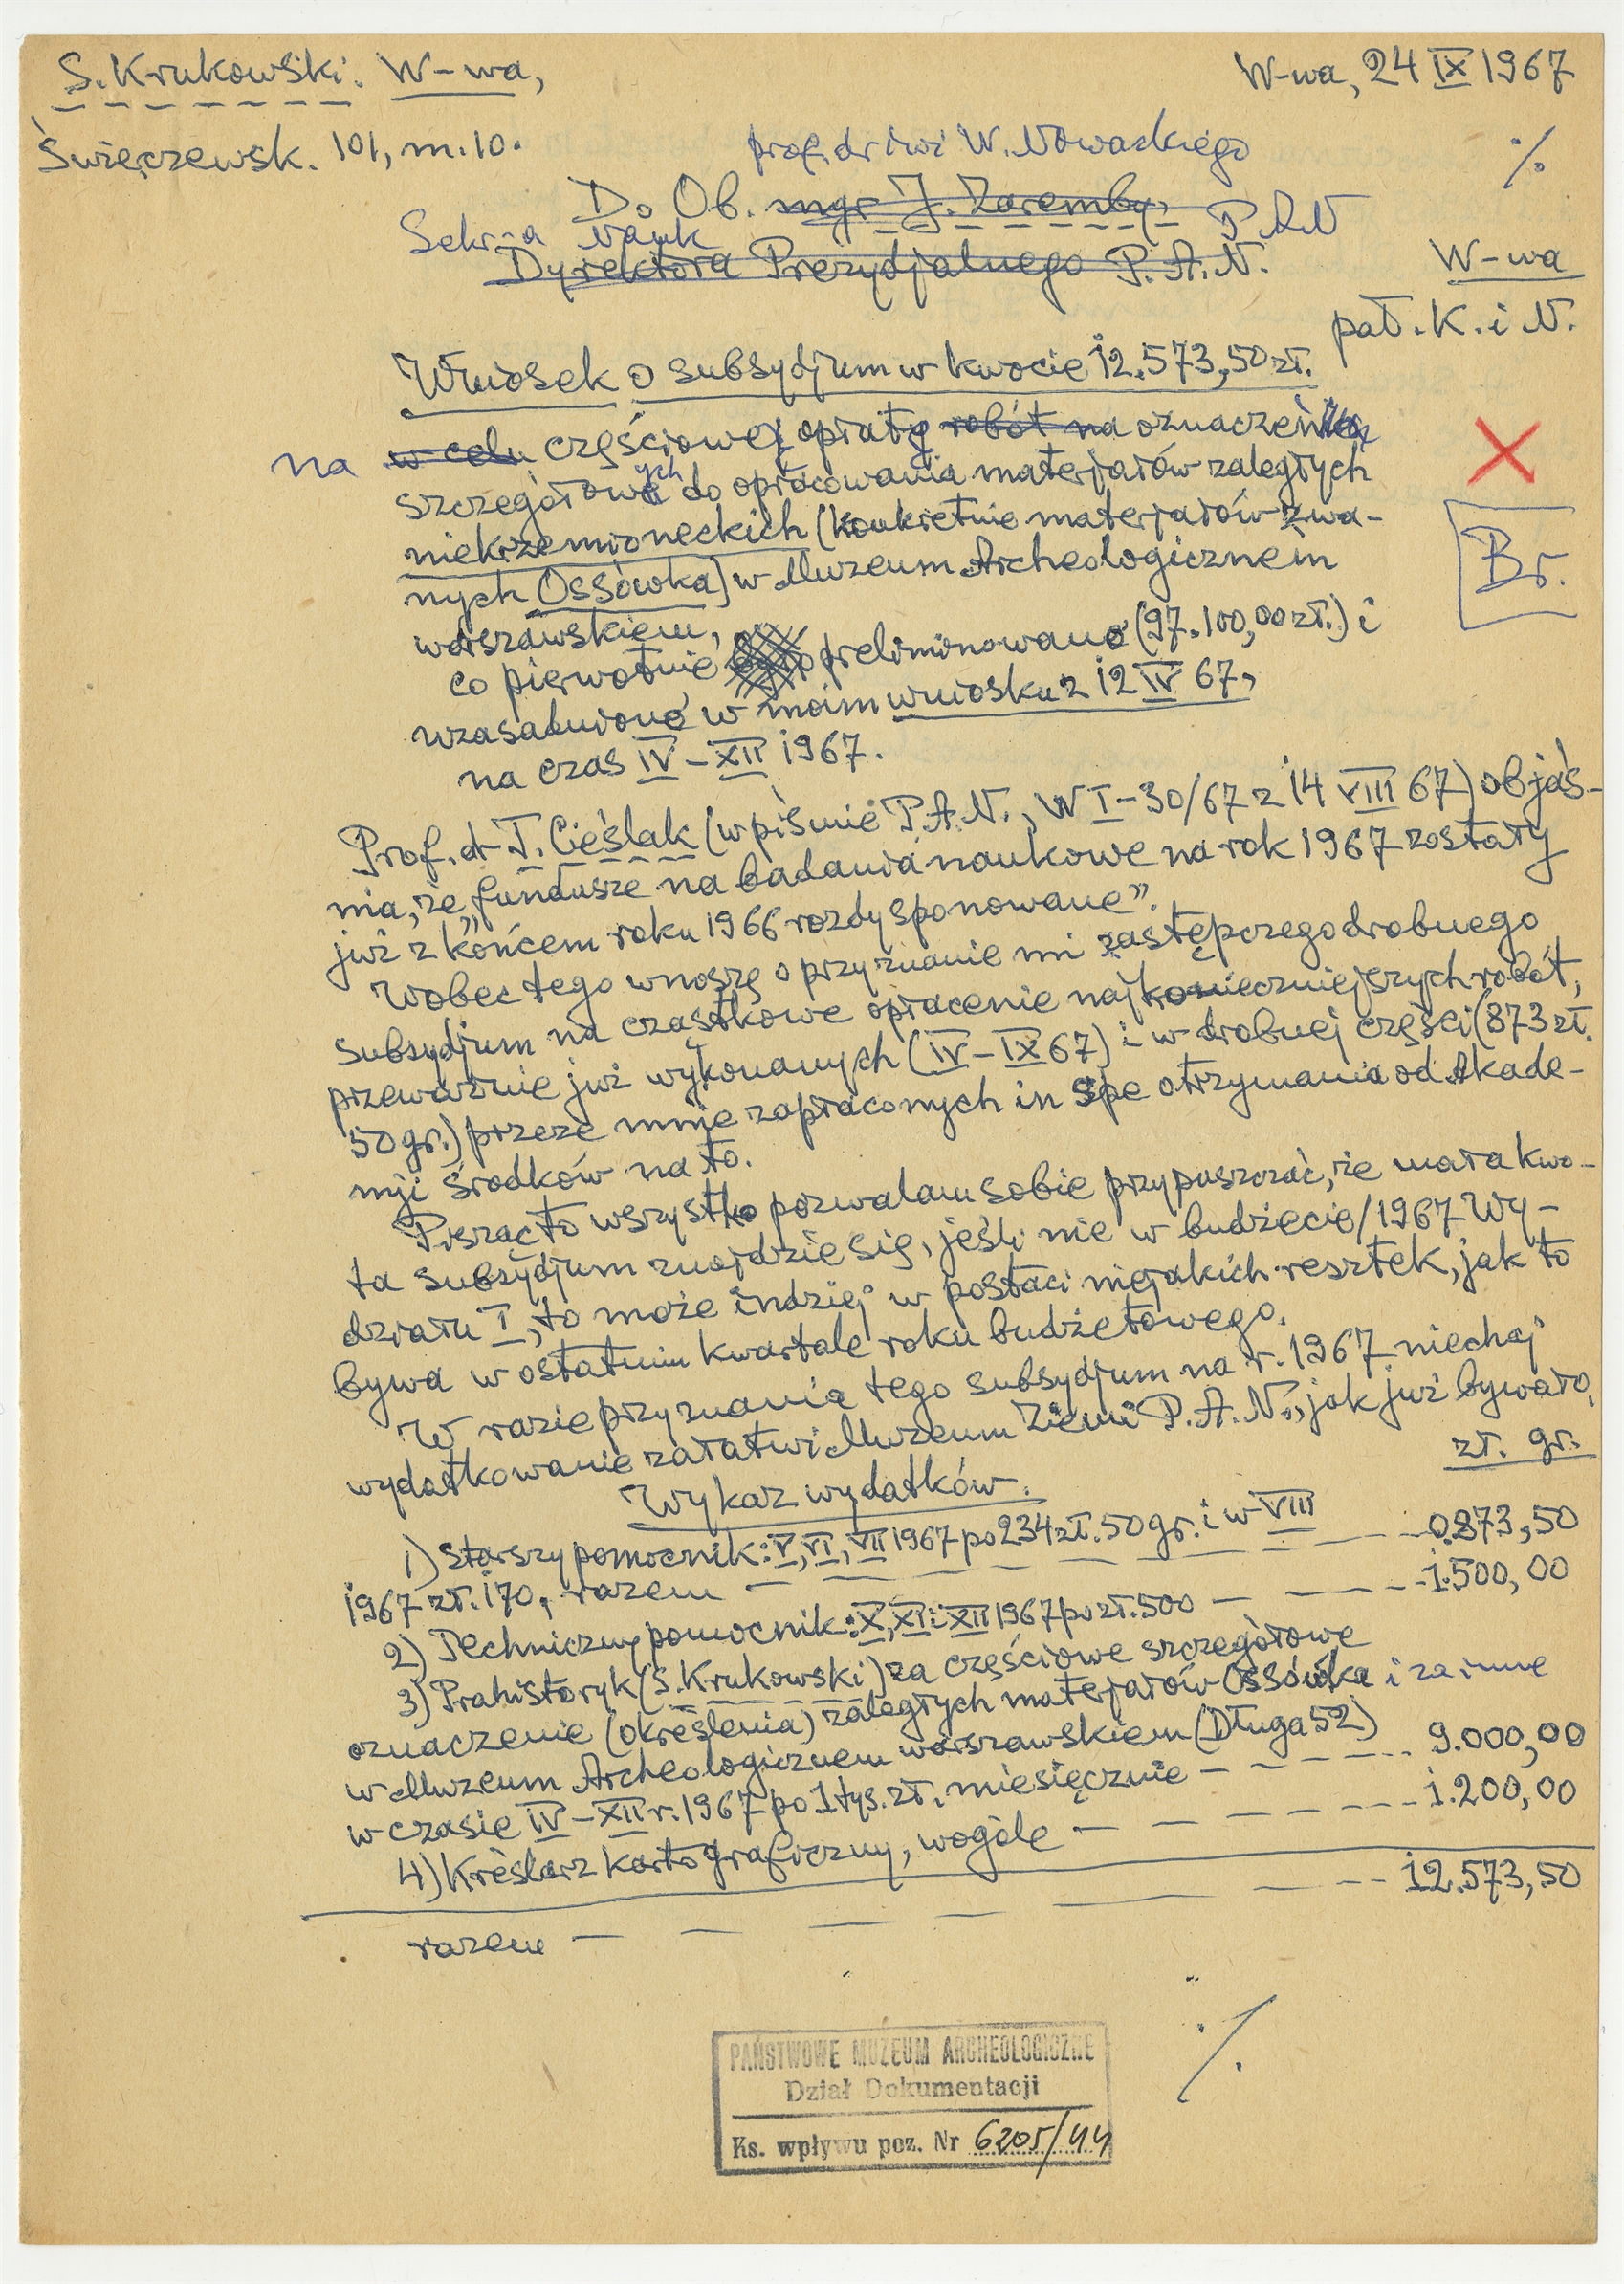 S. Krukowski. W-wa,
W-wa, 24 IX 1967
Święczewsk. 101, m. 10.
prof. dr inż W. Nowackiego
%
Do Ob. mgr J. Zaremby,
Sekr-a Nauk P.A.N
Dyrektora Prezydjalnego P. A. N.
W-wa
pał. K. i N.
Wniosek o subsydjum w kwocie 12.573,50 zł.
na w celu częściowej opłaty robót na oznaczenia
szczegółowych do opracowania materjałów zaległych
niekrzemioneckich (konkretnie materjałów zwa-
nych Ossówka) w Muzeum Archeologicznem
Br.
warszawskiem,
co pierwotnie preliminowano (97.100,00 zł.) i
uzasadniono w moim wniosku z 12 IV 67,
na czas IV – XII 1967.
Prof. dr T. Cieślak (w piśmie P.A.N., W I-30/67 z 14 VIII 67) objaś-
nia, że „fundusze na badania naukowe na rok 1967 zostały
już z końcem roku 1966 rozdysponowane”.
Wobec tego wnoszę o przyznanie mi zastępczego drobnego
subsydjum na cząstkowe opłacenie najkonieczniejszych robót,
przeważnie już wykonanych (IV – IX 67) i w drobnej części (873 zł.
50 gr.) przeze mnie zapłaconych in spe otrzymania od Akade-
mji środków na to.
Pisząc to wszystko pozwalam sobie przypuszczać, że mała kwo-
ta subsydjum znajdzie się, jeśli nie w budżecie/1967 Wy-
działu I, to może indziej w postaci niejakich resztek, jak to
bywa w ostatnim kwartale roku budżetowego.
W razie przyznania tego subsydjum na r. 1967 niechaj
wydatkowanie załatwi Muzeum Ziemi P. A. N., jak już bywało.
zł. gr.
Wykaz wydatków.
1) Starszy pomocnik: V, VI, VII 1967 po 234 zł. 50 gr. i w VIII
1967 zł. 170, razem — — — — — 0.873,50
2) Techniczny pomocnik: X, XI i XII 1967 po zł. 500 — — — 1.500,00
3) Prahistoryk (S. Krukowski) za częściowe szczegółowe
oznaczenie (określenia) zaległych materjałów Ossówka i za inne
w Muzeum Archeologicznem warszawskiem (Długa 52)
w czasie IV – XII r. 1967 po 1 tys. zł. miesięcznie — — — — 9.000,00
4) Kreślarz kartograficzny, wogóle — — — — — 1.200,00
razem — — — — — — — 12.573,50
%
PAŃSTWOWE MUZEUM ARCHEOLOGICZNE
Dział Dokumentacji
Ks. wpływu poz. Nr 6205/44